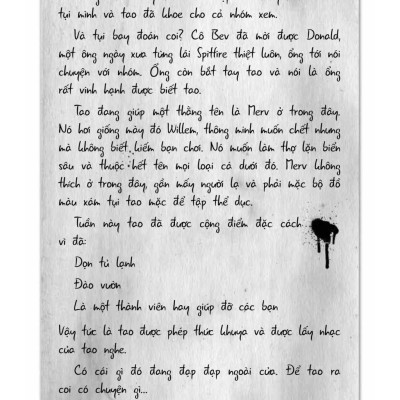 tụi mình và tao đã khoe cho cả nhóm xem.
Và tụi bay đoán coi? Cô Bev đã mời được Donald,
một ông ngày xưa từng lái Spitfire thiệt luôn, ổng tới nói
chuyện với nhóm. Ổng còn bắt tay tao và nói là ổng
rất vinh hạnh được biết tao.
Tao đang giúp một thằng tên là Merv ở trong đây.
Nó hơi giống mày đó Willem, thông minh muốn chết nhưng
mà không biết kiếm bạn chơi. Nó muốn làm thợ lặn biển
sâu và thuộc hết tên mọi loại cá dưới đó. Merv không
thích ở trong đây, gần mấy người lạ và phải mặc bộ đồ
màu xám tụi tao mặc để tập thể dục.
Tuần này tao đã được cộng điểm đặc cách
vì đã:
Dọn tủ lạnh
Đào vườn
Là một thành viên hay giúp đỡ các bạn
Vậy tức là tao được phép thức khuya và được lấy nhạc
của tao nghe.
Có cái gì đó đang đập đập ngoài cửa. Để tao ra
coi có chuyện gì...